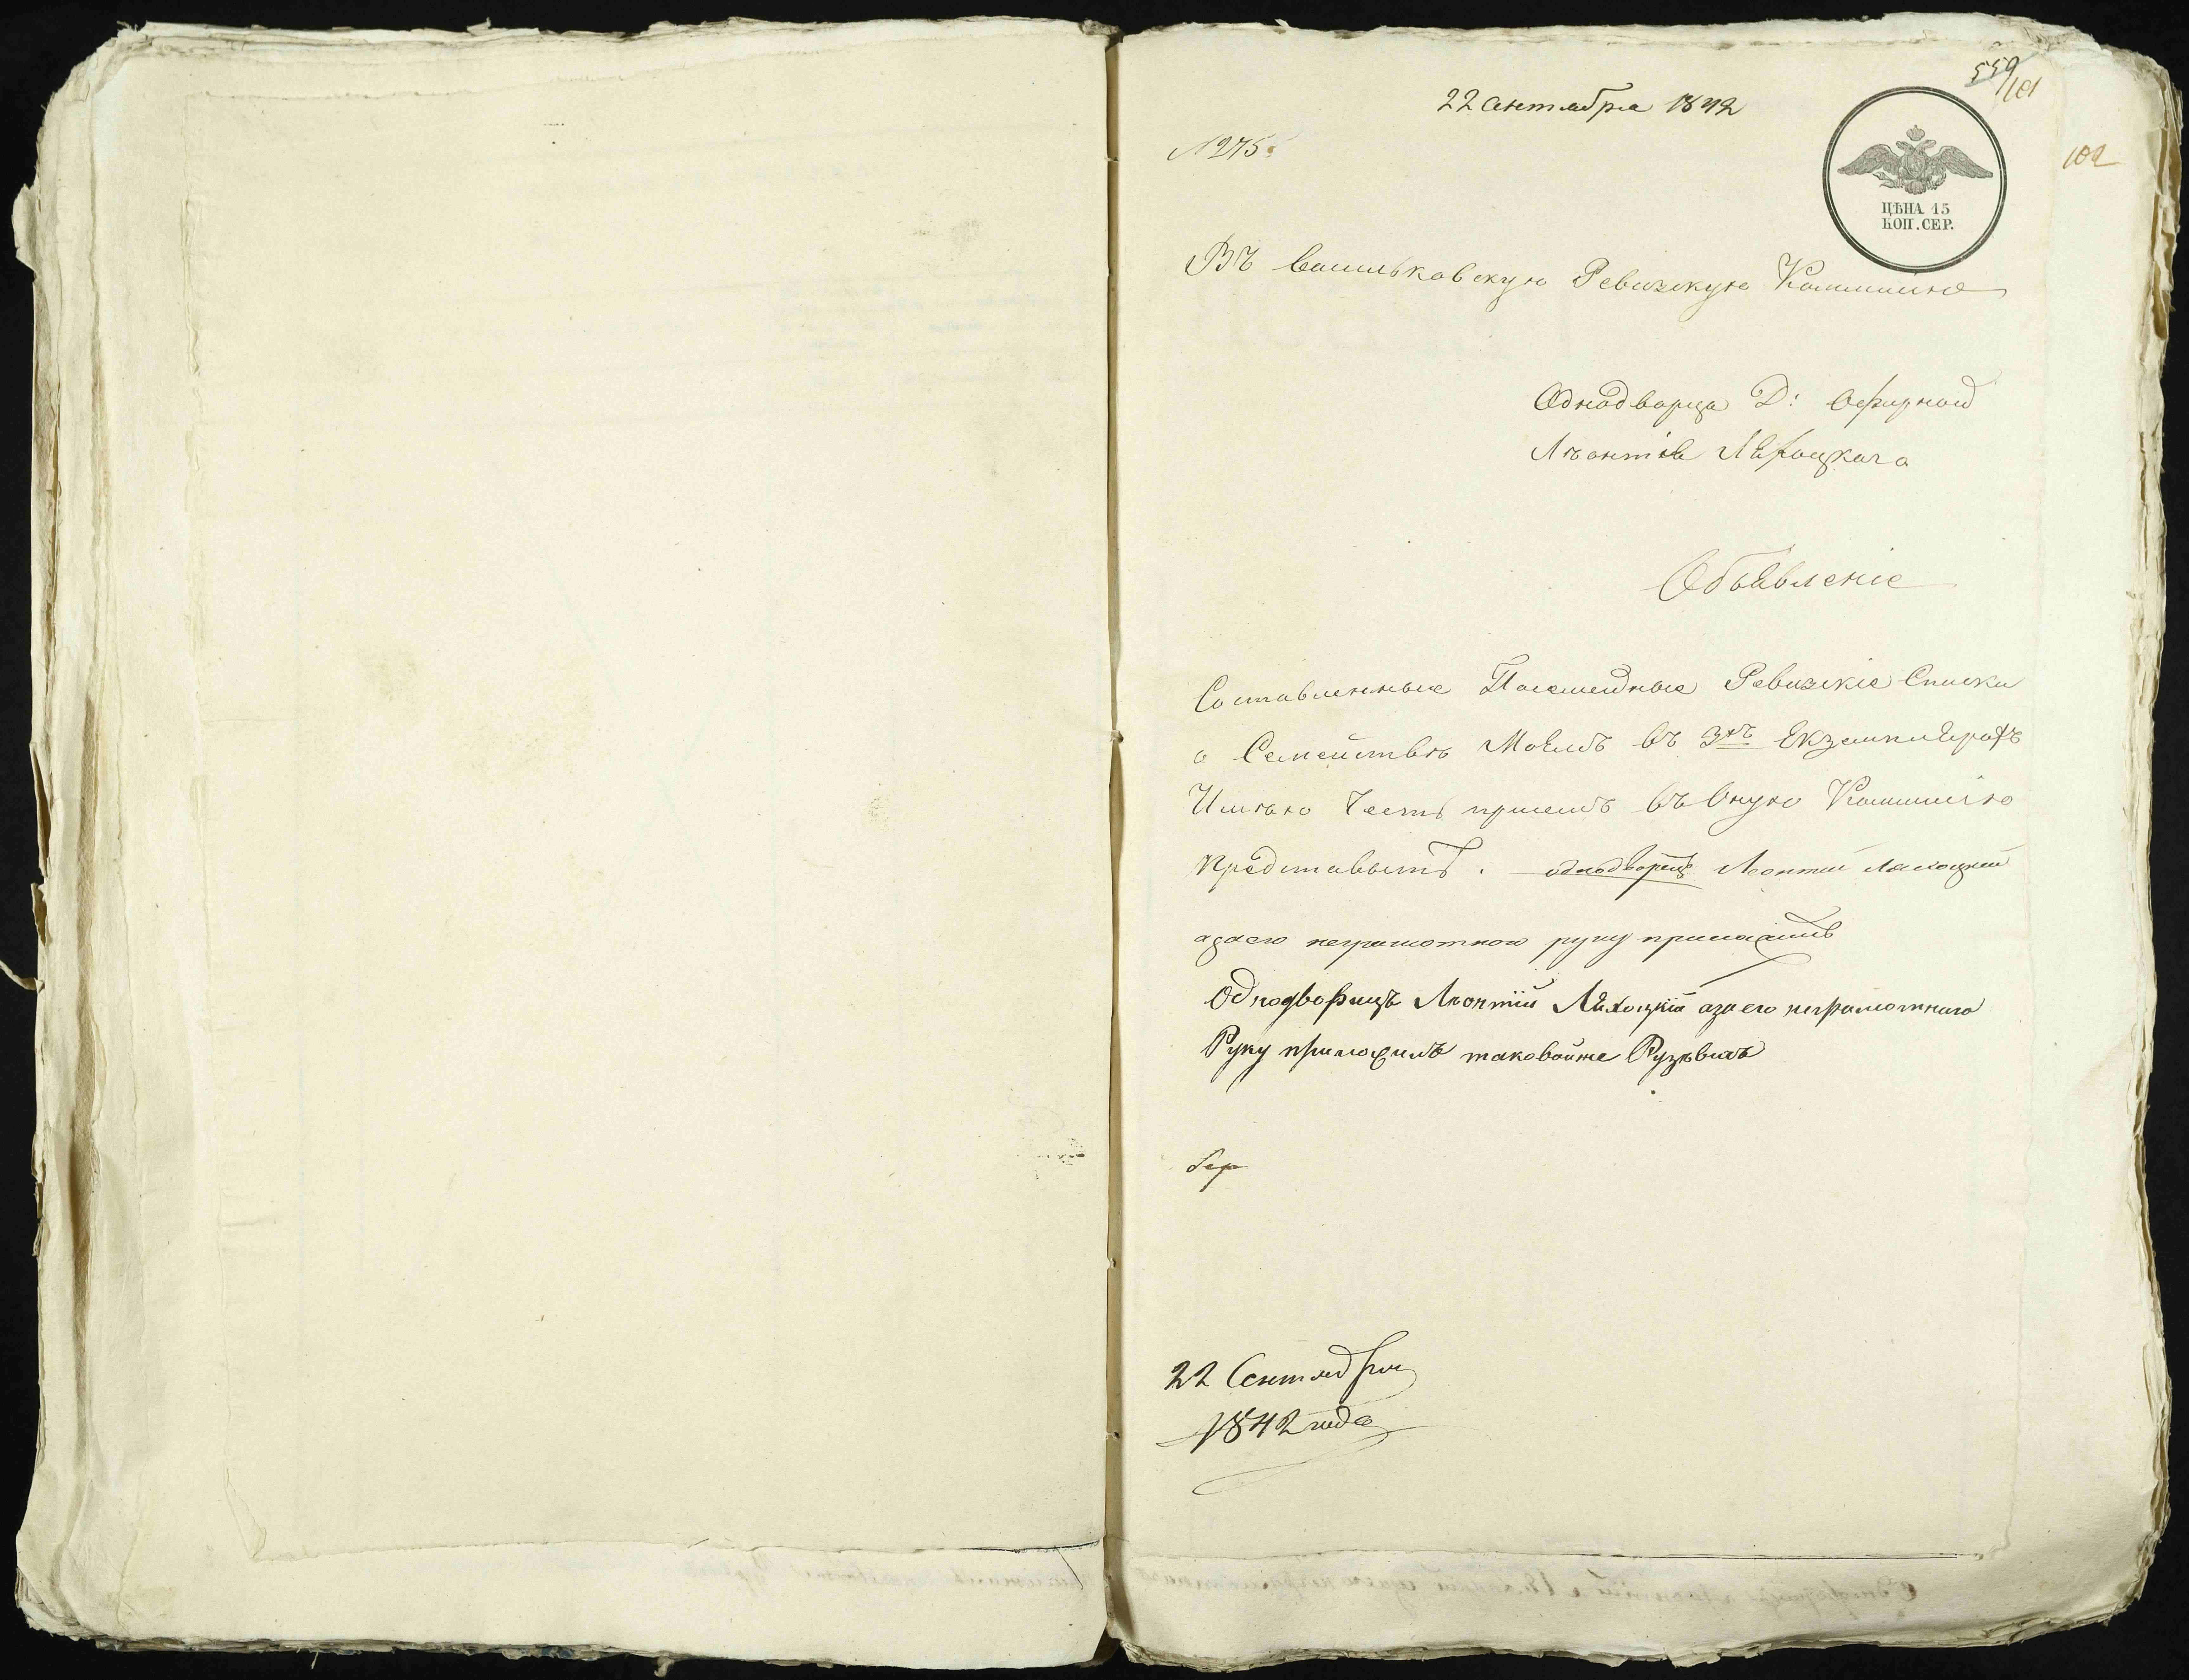 559/101
22 Сентября 1842
№ 275.
102
ЦѢНА 15
КОП. СЕР.
Въ Васильковскую Ревизскую Комиссію
Однодворца Д:
Лѣонтія
Объявленіе
Составленные Посемейные Ревизскіе Списки
о Семействѣ Моемъ въ 3хъ Екземплярахъ
Имѣю Честь присемъ въ Оную Комиссію
Представить. однодворецъ Леонтий
азаего неграмотного руку приложилъ
Однодворицъ Лѣонтій азаего неграмотного
Руку приложилъ таковойже
22 Сентября
1842 года